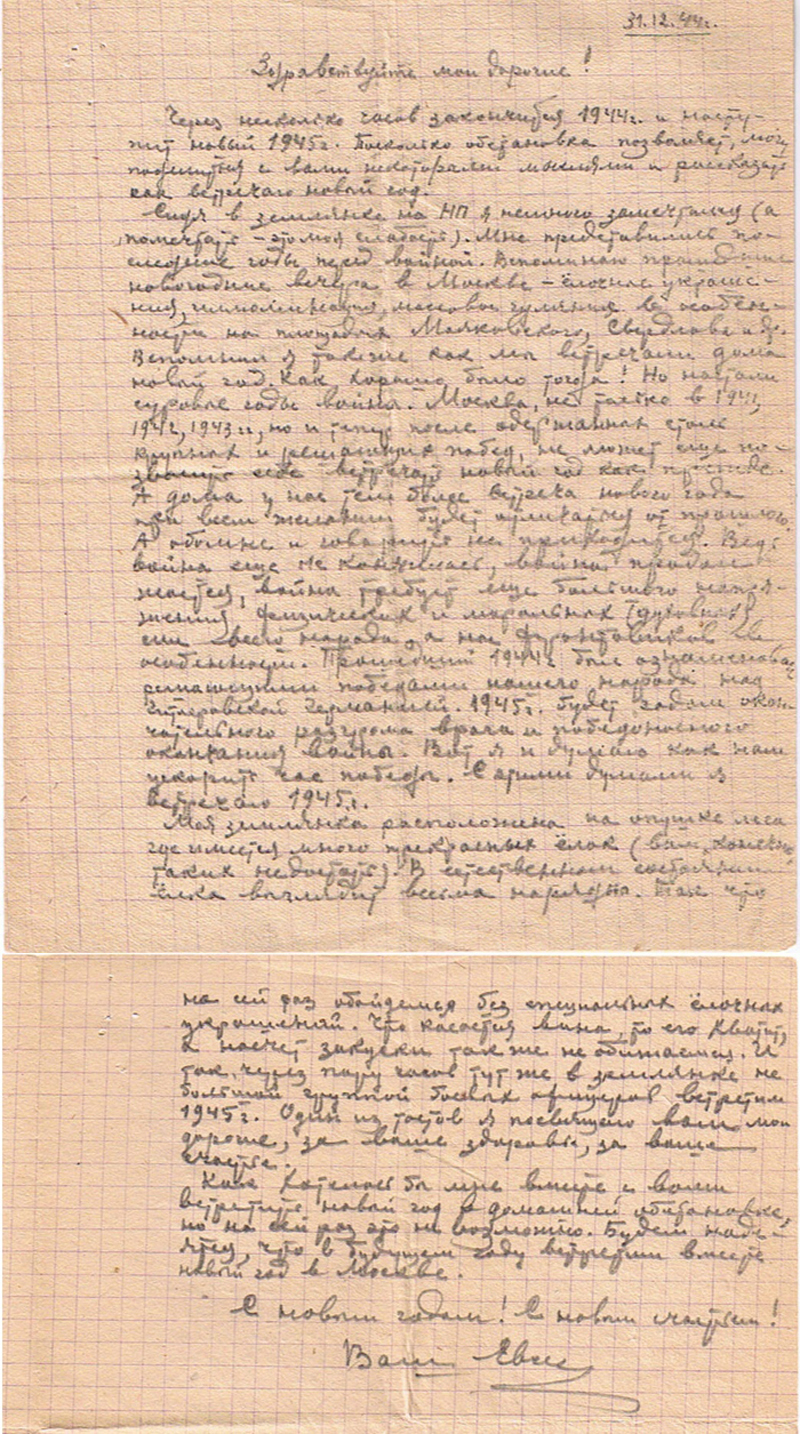 31.12.44г.
Здравствуйте мои дорогие!
Через несколько часов закончится 1944г. и насту-
пит новый 1945г. Поскольку обстановка позволяет, могу
поделиться с вами некоторыми мыслями и рассказать
как встречаю новый год.
Сидя в землянке на НП я немного замечтался (а
помечтать – это моя слабость). Мне представились по-
следние годы перед войной. Вспоминаю прошедшие
новогодние вечера в Москве – ёлочные украше-
ния, иллюминация, массовые гуляния в особен-
ности на площадях Маяковского, Свердлова и др.
Вспомнил я также как мы встречали дома
новый год. Как хорошо было тогда! Но настали
суровые годы войны. Москва, не только в 1941,
1942, 1943гг, но и теперь после одержанных столь
крупных и решающих побед, не может еще по-
зволить себе встречать новый год как прежде.
А дома у нас тем более встреча нового года
при всем желании будет отличаться от прошлого.
А обо мне и говорить не приходится. Ведь
война еще не кончилась, война продол
жается, война требует еще большого напря-
жения, физических и моральных (духовных)
сил всего народа, а нас фронтовиков в
особенности. Прошедший 1944г был ознаменован
решающими победами нашего народа над
гитлеровской Германией. 1945г. будет годом окон-
чательного разгрома врага и победоносного
окончания войны. Вот я и думаю как нам
ускорить час победы. С этими думами я
встречаю 1945г.
Моя землянка расположена на опушке леса
где имеется много прекрасных ёлок (вам, конечно
таких не достать). В естественном состоянии
ёлка выглядит весьма нарядно. Так что
на сей раз обойдемся без специальных ёлочных
украшений. Что касается вина, то его хватит,
а насчет закуски так же не обижаемся. И
так, через пару часов тут же в землянке не
большой группой боевых офицеров встретим
1945г. Один из тостов я посвящаю вам мои
дорогие, за ваше здоровье, за ваше
счастье.
Как хотелось бы мне вместе с вами
встретить новый год в домашней обстановке,
но на сей раз это не возможно. Будем наде-
яться, что в будущем году встретим вместе
новый год в Москве.
С новым годом! С новым счастьем!
Ваш